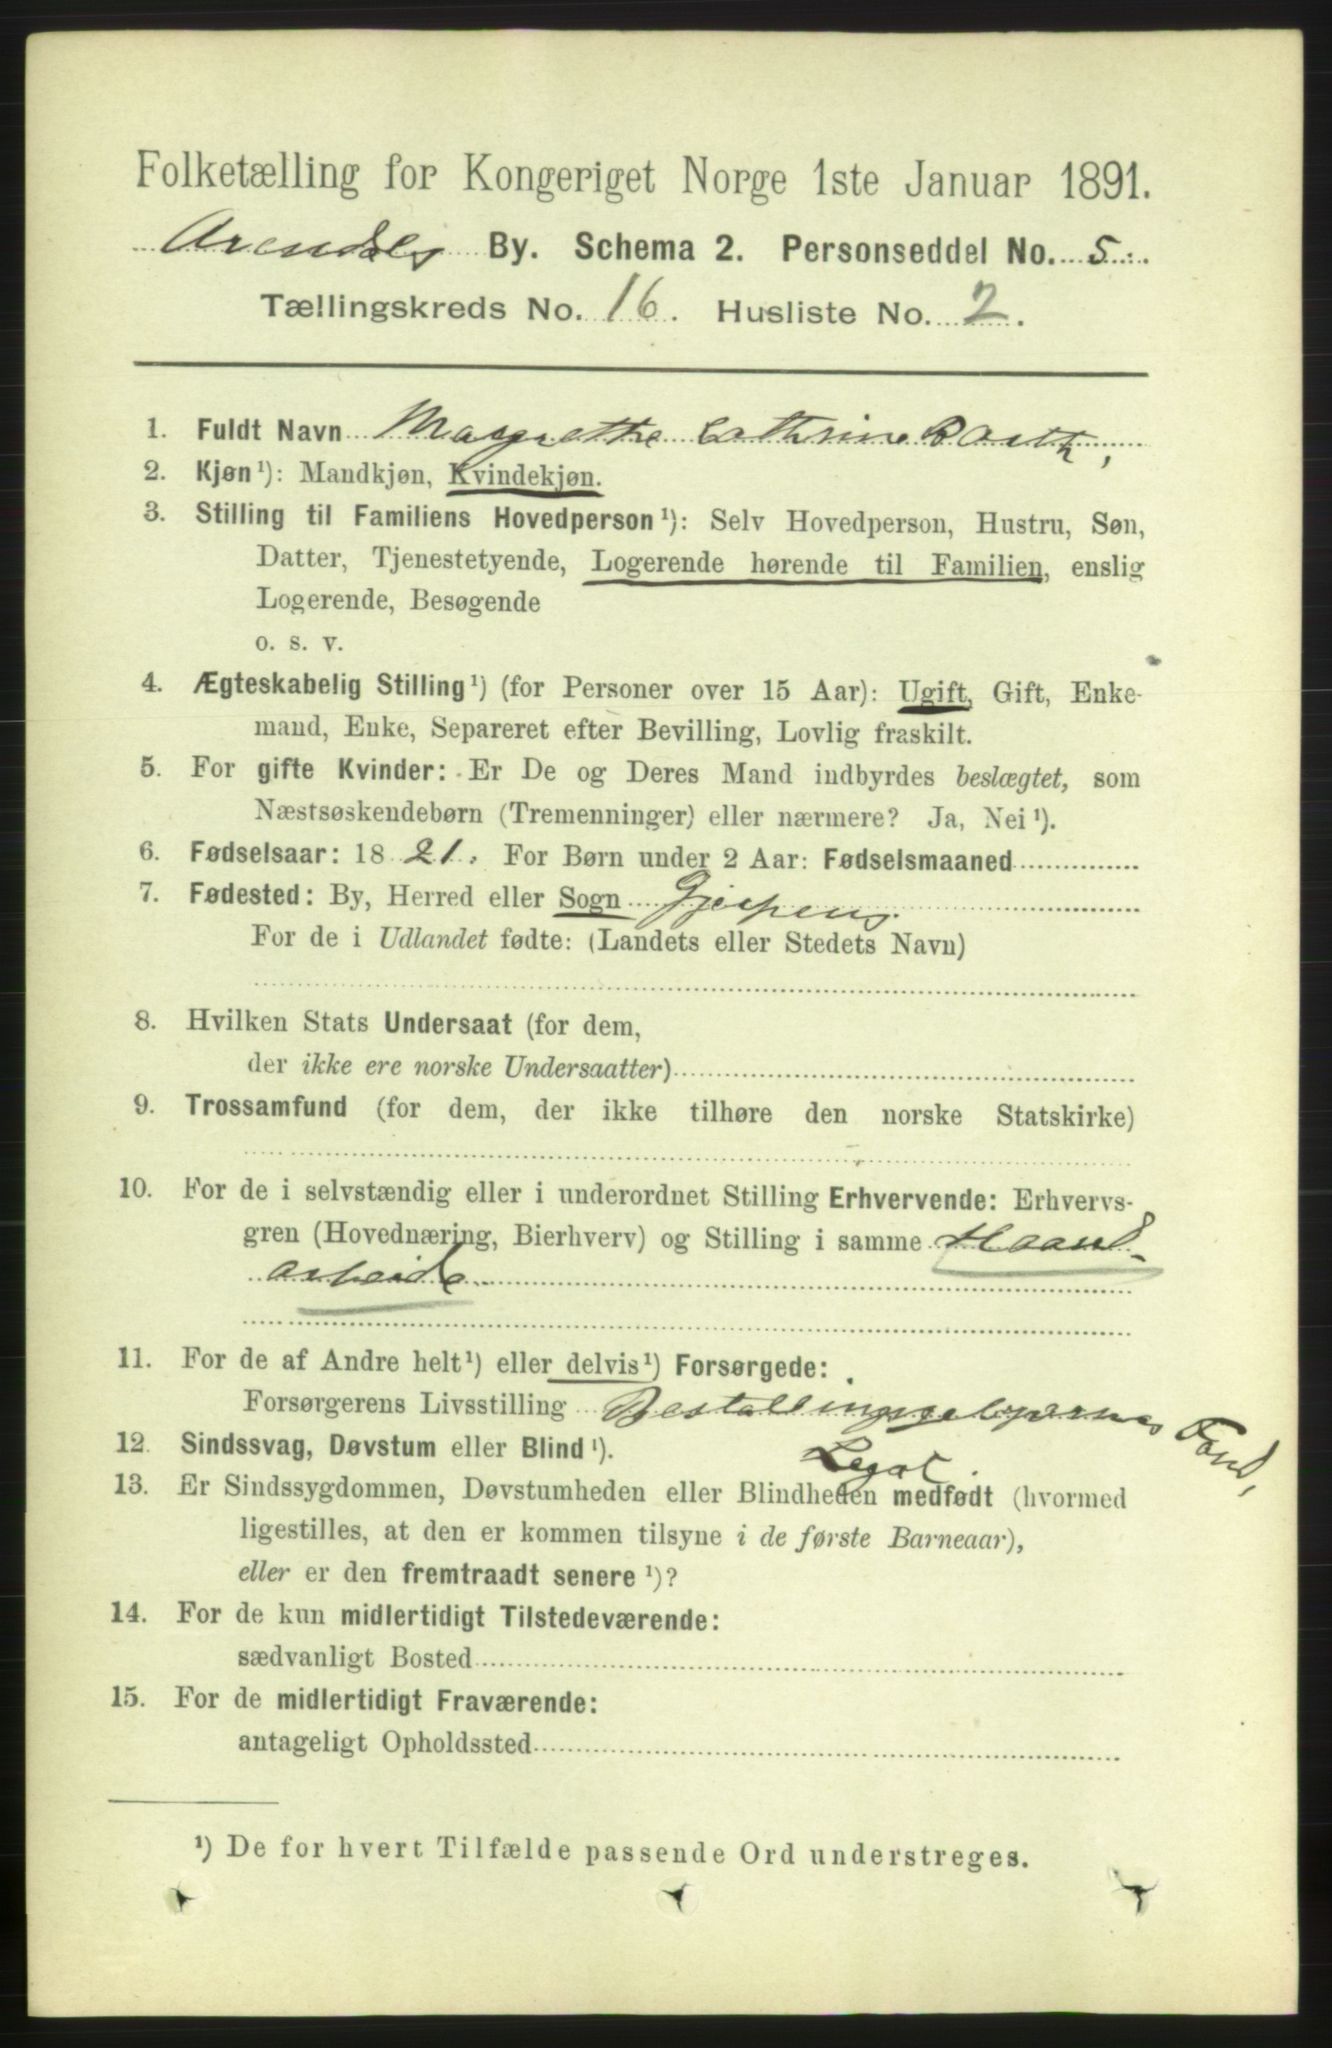 Folketælling for Kongeriget Norge 1ste Januar 1891.
Arendals By. Schema 2. Personseddel No. 5.
Tællingskreds No. 16. Husliste No. 2.
1. Fuldt Navn Margrethe Cathrine Barth,
2. Kjøn¹): Mandkjøn, Kvindekjøn.
3. Stilling til Familiens Hovedperson¹): Selv Hovedperson, Hustru, Søn,
Datter, Tjenestetyende, Logerende hørende til Familien, enslig
Logerende, Besøgende
o. s. v.
4. Ægteskabelig Stilling¹) (for Personer over 15 Aar): Ugift, Gift, Enke-
mand, Enke, Separeret efter Bevilling, Lovlig fraskilt.
5. For gifte Kvinder: Er De og Deres Mand indbyrdes beslægtet, som
Næstsøskendebørn (Tremenninger) eller nærmere? Ja, Nei¹).
6. Fødselsaar: 1821. For Børn under 2 Aar: Fødselsmaaned
7. Fødested: By, Herred eller Sogn Gjerpens.
For de i Udlandet fødte: (Landets eller Stedets Navn)
8. Hvilken Stats Undersaat (for dem,
der ikke ere norske Undersaatter)
9. Trossamfund (for dem, der ikke tilhøre den norske Statskirke)
10. For de i selvstændig eller i underordnet Stilling Erhvervende: Erhvervs-
gren (Hovednæring, Bierhverv) og Stilling i samme Haand-
arbeide
11. For de af Andre helt¹) eller delvis¹) Forsørgede:
Forsørgerens Livsstilling Fond,
12. Sindssvag, Døvstum eller Blind¹). Legat
13. Er Sindssygdommen, Døvstumheden eller Blindheden medfødt (hvormed
ligestilles, at den er kommen tilsyne i de første Barneaar),
eller er den fremtraadt senere¹)?
14. For de kun midlertidigt Tilstedeværende:
sædvanligt Bosted
15. For de midlertidigt Fraværende:
antageligt Opholdssted
¹) De for hvert Tilfælde passende Ord understreges.